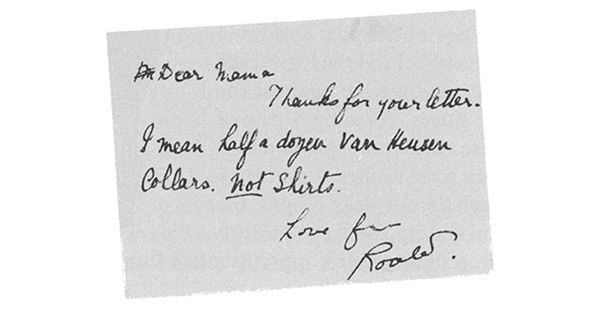 Dear Mama
Thanks for your letter.
I mean half a dozen Van Heusen
Collars. Not Shirts.
Love from
Roald.